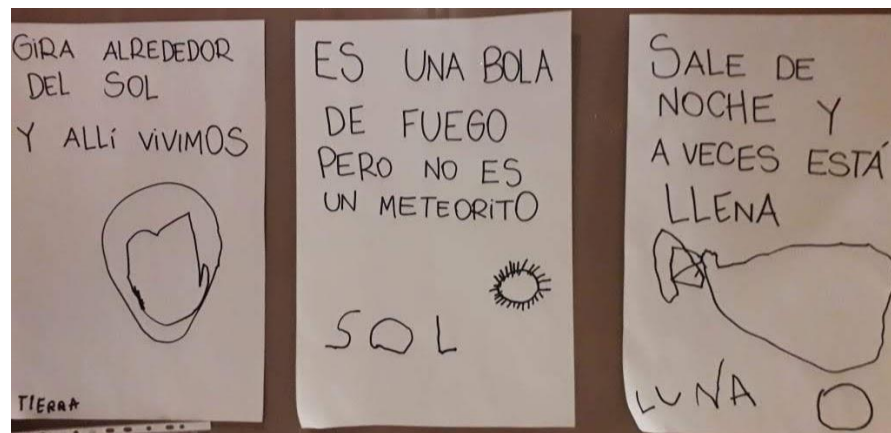 GIRA ALREDEDOR
DEL SOL
Y ALLÍ VIVIMOS
TIERRA
ES UNA BOLA
DE FUEGO
PERO NO ES
UN METEORITO
SOL
SALE DE
NOCHE Y
A VECES ESTÁ
LLENA
LUNA